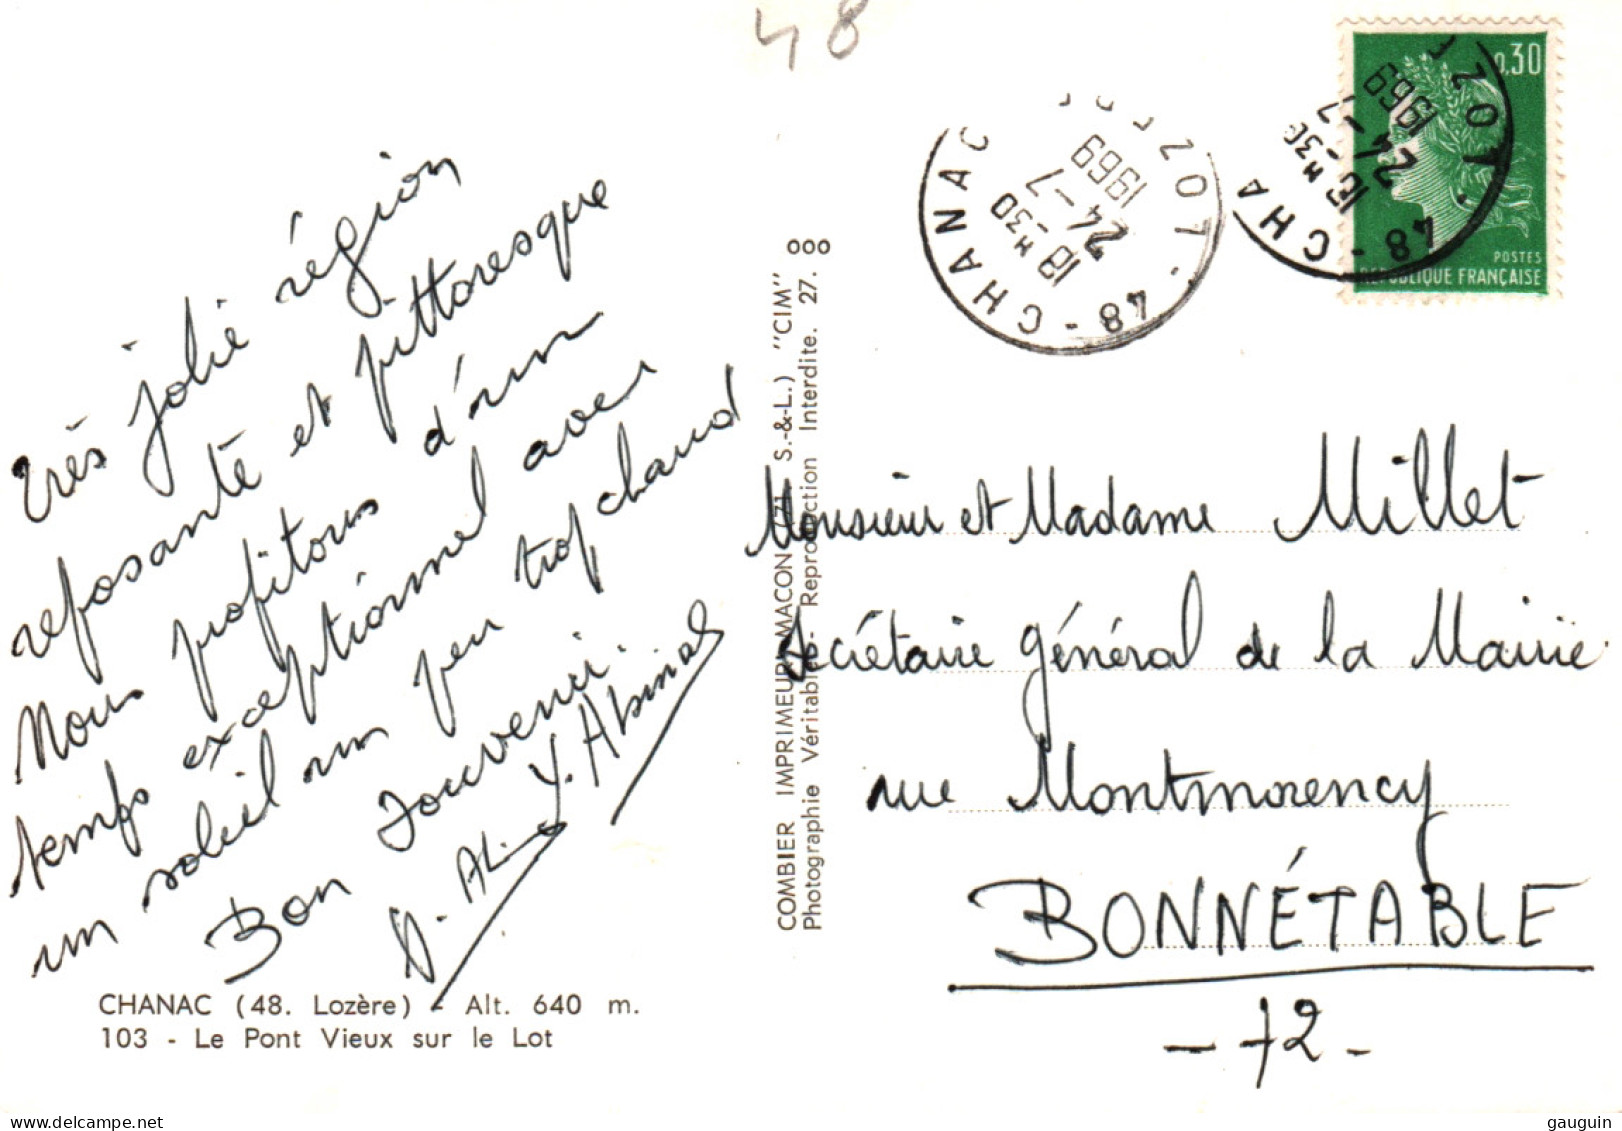 48
Très jolie région
reposante et pittoresque
Nous profitons d'un
temps exceptionnel avec
un soleil un peu trop chaud
Bon souvenir.
CHANAC (48. Lozère) - Alt. 640 m.
103 - Le Pont Vieux sur le Lot
COMBIER IMPRIMEUR MACON (71 S.-&-L.) "CIM"
Photographie Véritable - Reproduction Interdite. 27.
48 - CHANAC
18 H -30
24 -7
1969
LOZ
48 - CHA
18 H -30
24 -7
1969
LOZ
0,30
POSTES
REPUBLIQUE FRANÇAISE
Monsieur et Madame Millet
Secrétaire général de la Mairie
rue Montmorency
BONNÉTABLE
- 72 -
delcampe.net
gauguin__